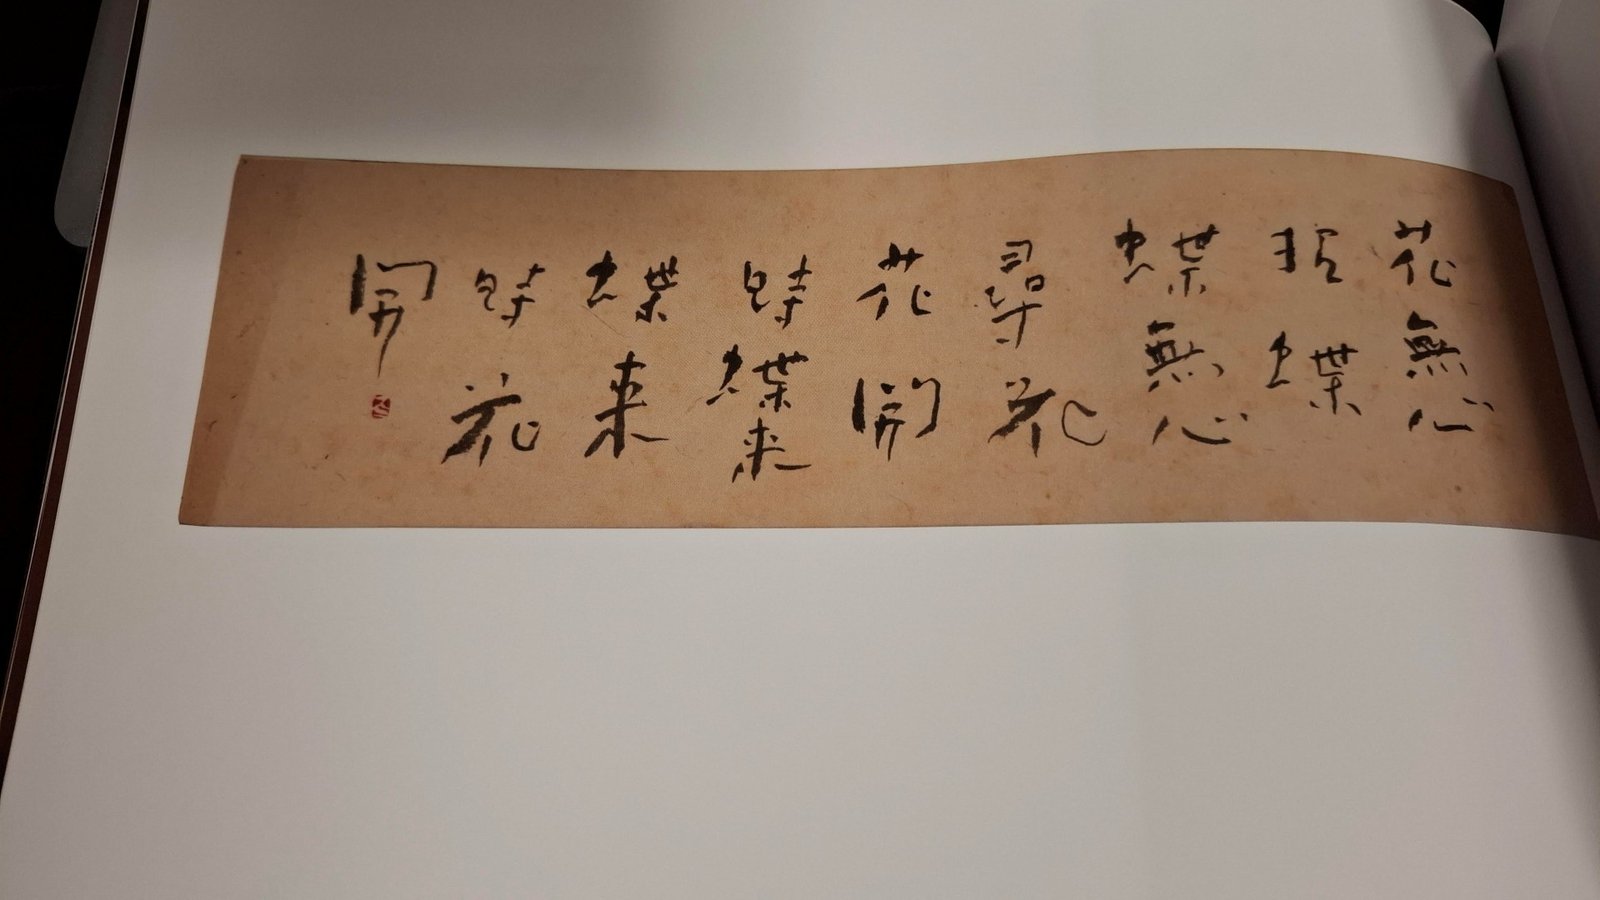 花無心
招蝶
蝶無心
尋花
花開
時蝶来
蝶来
時花
開